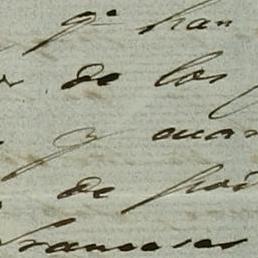 qe han
de los
y cuan
de
franceses